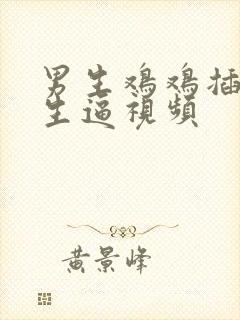 男生鸡鸡插
生逼視頻
黄景峰